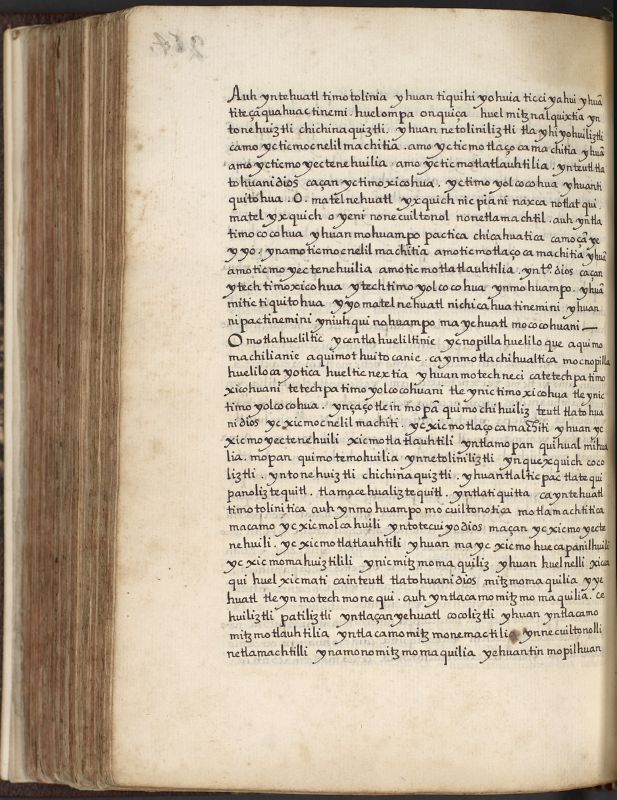 264.
Auh yntehuatl timotolinia yhuan tiquihiyohuia ticciyahui yhuā
titeçāquahuactinemi. huelompa onquiça huel mitznalquixtia yn
tonehuiztli chichinaquiztli. yhuan netoliniliztli tlayhiyohuiliztli
camo yc ticmocnelilmachitiā. amo yc ticmotlaçocamachitia yhuā
amo yc ticmoyectenehuilia. amo yc ticmotlatlauhtilia. ynteutl tla
tohuani dios caçan yc timoxicohua. yc timoyolcocohua yhuan ti
quitohua. O. matel nehuatl yxquich nicpiani naxca notlatqui
matel yxquich oyeni nonecuiltonol nonetlamachtil. auh yntla
timococohua yhuan mohuampo pactica chicahuatica camo çā ye
yyo. ynamo ticmocnelilmachitia amo ticmotlaçocamachitia yhuā
amo ticmoyectenehuilia amo ticmotlatlauhtilia. yn tº. dios caçan
ytech timoxicohua ytech timoyolcocohua ynmohuampo. yhuā
mitic tiquitohua yyo matel nehuatl nichicahuatinemini yhuan
nipactinemini yniuhqui nohuampo ma yehuatl mococohuani
O motlahueliltic ycentlahueliltinie ycnopillahueliloque aquimo
machilianie aquimothuitocanie. caynmotlachihualtica mocnopilla
hueliloca yotica hueltic nextia yhuan motechneci catetech patimo
xicohuani tetech patimoyolcocohuani tleynic timoxicohua tleynic
timoyolcocohua. ynçaço tlein mopā quimochihuiliz teutl tlatohua
ni dios yc xicmocnelilmachiti. yc xicmotlaçocamachiti yhuan yc
xicmoyectenehuili xicmotlatlauhtili yntla mopan quihualmihua
lia. mopan quimotemohuilia ynnetoliniliztli ynquexquich coco
liztli. yntonehuiztli chichinaquiztli. yhuan tlalticpac tlatequi
panoliztequitl. tlamacehualiztequitl. yntla tiquitta ca yntehuatl
timotolinitica auh ynmohuampo mocuiltonotica motlamachtitica
macamo yc xicmolcahuili yntotecuiyo dios maçan yc xicmoyecte
nehuili. yc xicmotlatlauhtili yhuan ma yc xicmohuecapanilhuili
yc xicmomahuiztilili ynic mitzmomaquiliz yhuan huelnelli xicca
qui huel xicmati cain teutl tlatohuani dios mitzmomaquilia yye
huatl tleyn motech monequi. auh yntlacamo mitzmomaquilia. ce
huiliztli patiliztli yntlaçan yehuatl cocoliztli yhuan yntlacamo
mitzmotlauhtilia yntlacamo mitzmonemactilia ynnecuiltonolli
netlamachtilli ynamono mitzmomaquilia yehuantin mopilhuan